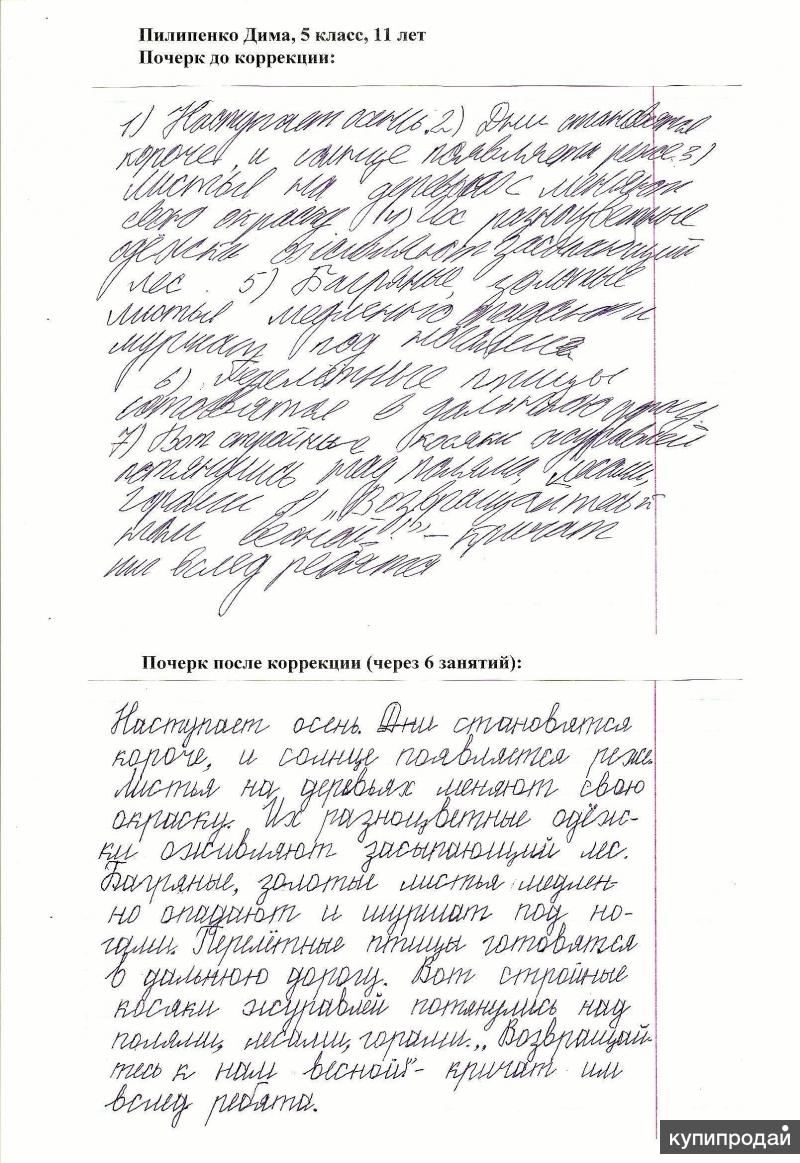 Пилипенко Дима, 5 класс, 11 лет
Почерк до коррекции:
1) Наступает осень. 2) Дни становятся
короче, и солнце появляется реже. 3)
Листья на деревьях меняют
свою окраску 4) Их разноцветные
одёжки оживляют засыпающий
лес. 5) Багряные, золотые
листья медленно опадают и
шуршат под ногами
6) Перелётные птицы
готовятся в дальнюю дорогу
7) Вот стройные косяки журавлей
потянулись над полями, лесами,
горами 8) „Возвращайтесь к
нам весной!" - кричат
им вслед ребята
Почерк после коррекции (через 6 занятий):
Наступает осень. Дни становятся
короче, и солнце появляется реже.
Листья на деревьях меняют свою
окраску. Их разноцветные одёж-
ки оживляют засыпающий лес.
Багряные, золотые листья медлен-
но опадают и шуршат под но-
гами. Перелётные птицы готовятся
в дальнюю дорогу. Вот стройные
косяки журавлей потянулись над
полями, лесами, горами. „Возвращай-
тесь к нам весной!" - кричат им
вслед ребята.
купипродай